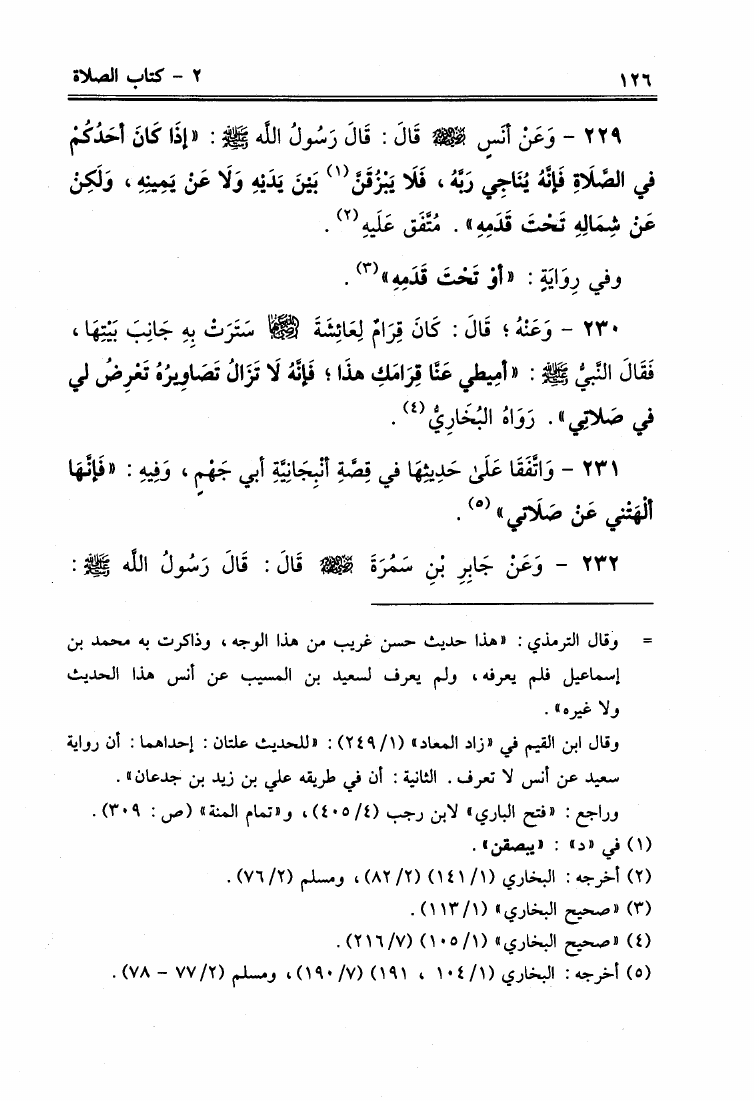 ١٢٦ ٢ - كتاب الصلاة
٢٢٩ - وَعَنْ أَنَسٍ ﵁ قَالَ: قَالَ رَسُولُ اللَّه ﷺ: «إِذَا كَانَ أَحَدُكُمْ
في الصَّلَاةِ فَإِنَّهُ يُنَاجِي رَبَّهُ، فَلَا يَبْزُقَنَّ(١) بَيْنَ يَدَيْهِ وَلَا عَنْ يَمِينِهِ، وَلَكِنْ
عَنْ شِمَالِهِ تَحْتَ قَدَمِهِ». مُتَّفَق عَلَيهِ(٢).
وفي رِوَايَةٍ: «أَوْ تَحْتَ قَدَمِهِ»(٣).
٢٣٠ - وَعَنْهُ؛ قَالَ: كَانَ قِرَامٌ لِعَائِشَةَ ﵂ سَتَرَتْ بِهِ جَانِبَ بَيْتِهَا،
فَقَالَ النَّبيُّ ﷺ: «أَمِيطي عَنَّا قِرَامَكِ هذَا؛ فَإِنَّهُ لَا تَزَالُ تَصَاوِيرُهُ تَعْرِضُ لي
في صَلاتِي». رَوَاهُ البُخَارِيُّ(٤).
٢٣١ - وَاتَّفَقَا عَلَىٰ حَدِيثِهَا في قِصَّةِ أَنْبِجَانِيَّةِ أَبي جَهْمٍ، وَفِيهِ: «فَإِنَّهَا
أَلْهَتْني عَنْ صَلَاتي»(٥).
٢٣٢ - وَعَنْ جَابِرِ بْنِ سَمُرَةَ ﵁ قَالَ: قَالَ رَسُولُ اللَّه ﷺ:
= وقال الترمذي: «هذا حديث حسن غريب من هذا الوجه، وذاكرت به محمد بن
إسماعيل فلم يعرفه، ولم يعرف لسعيد بن المسيب عن أنس هذا الحديث
ولا غيره».
وقال ابن القيم في «زاد المعاد» (٢٤٩/١): «للحديث علتان: إحداهما: أن رواية
سعيد عن أنس لا تعرف. الثانية: أن في طريقه علي بن زيد بن جدعان».
وراجع: «فتح الباري» لابن رجب (٤٠٥/٤)، و«تمام المنة» (ص: ٣٠٩).
(١) في «د»: «يبصقن».
(٢) أخرجه: البخاري (١٤١/١) (٨٢/٢)، ومسلم (٧٦/٢).
(٣) «صحيح البخاري» (١١٣/١).
(٤) «صحيح البخاري» (١٠٥/١) (٢١٦/٧).
(٥) أخرجه: البخاري (١٠٤/١، ١٩١) (١٩٠/٧)، ومسلم (٧٧/٢ - ٧٨).